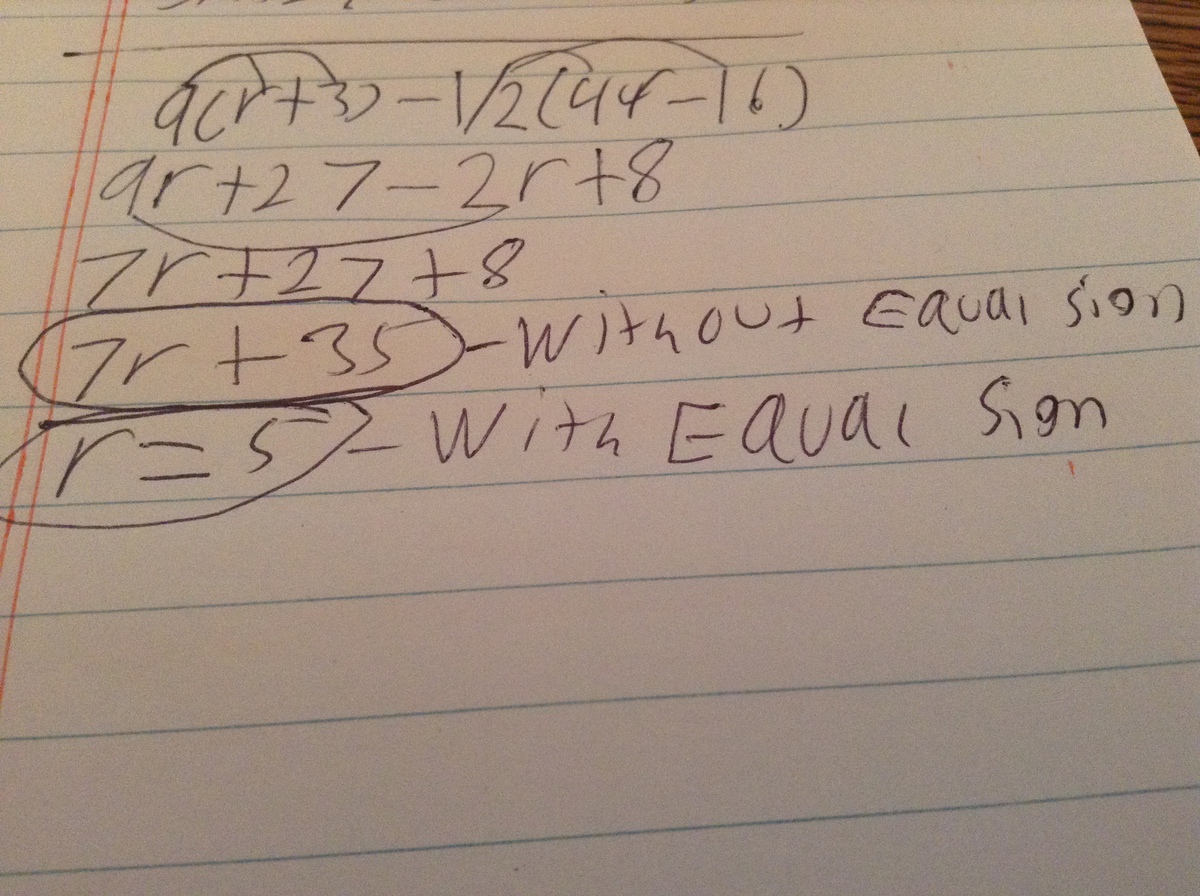 9(r+3)-1/2(4r-16)
9r+27-2r+8
7r+27+8
7r+35 -Without Equal sign
r=5 -With Equal Sign